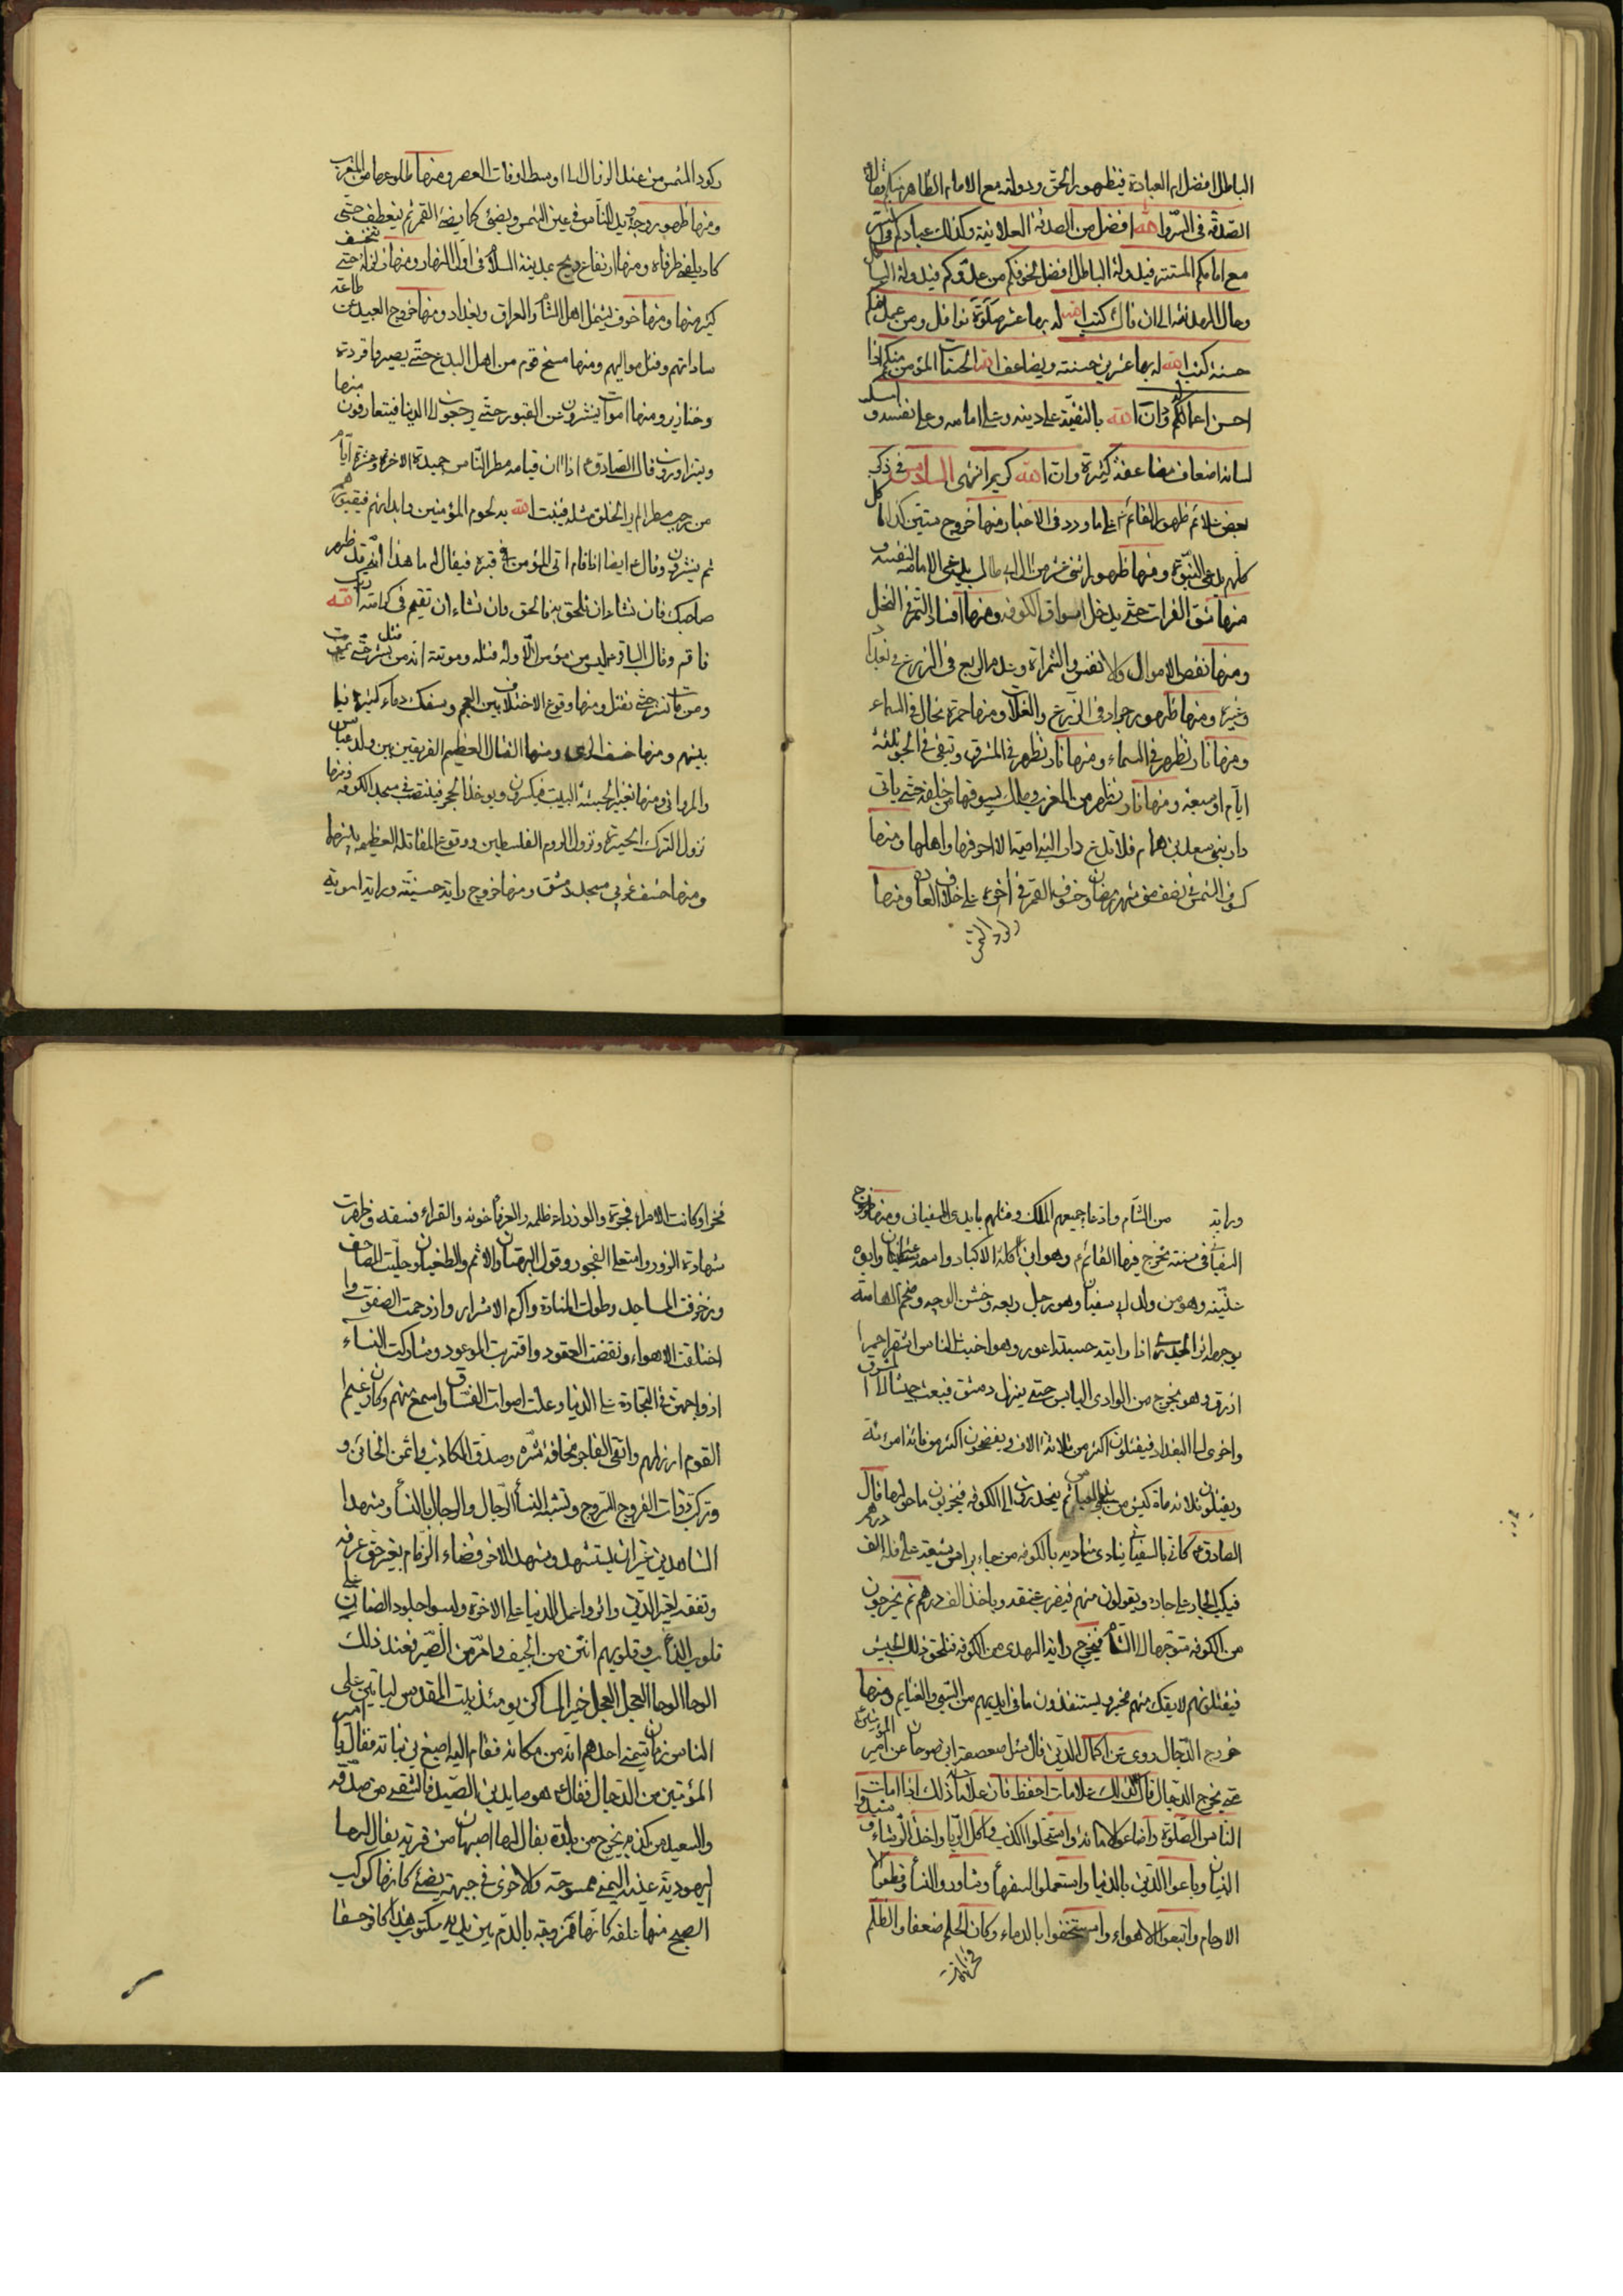 الباطل افضل ام العبادة فيظهور الحق ودولته مع الامام الظاهر
الصدقة فى السر والله افضل من الصدقة العلانية وكذلك عبادتكم فى السر
مع امامكم المستتر فيدولة الباطل افضل لخوفكم من عدوكم فيدولة
الى ان قال كتب الله له بها عشر صلوة نوافل ومن عمل منكم
حسنة كتب الله له بها عشرين حسنة ويضاعف الله الحسنات المؤمن منكم اذا
احسن اعماله ودان الله بالتقية على دينه وعلى امامه وعلى نفسه و امسك
لسانه اضعاف مضاعفة كثيرة وان الله كريم انتهى السادس فى ذكر
بعض علائم ظهور القائم على ما ورد فى الاخبار منها خروج ستين كذابا
كلهم يدعى النبوة ومنها ظهور اثنى عشر من ال ابى طالب يدعى الامامة لنفسه و
منها شق الفرات حتى يدخل اسواق الكوفه ومنها افساد التمر فى النخل
ومنها نقص الاموال والانفس والثمرات فى الزرع
وغيره ومنها ظهور جراد فى الزرع والغلات ومنها حمرة فى السماء
ومنها نار تظهر فى السماء ومنها نار تظهر فى المشرق وتبقى فى الجو ثلثة
ايام او سبعة ومنها نار تظهر من المغرب وملك يسوقها من خلفه حتى ياتى
دار بنى سعد بن همام فلا تدع دار البنى امية الا احرقها واهلها ومنها
كسوف الشمس فى نصف من شهر رمضان وخسوف القمر فى آخره على خلاف العادة ومنها
ركود الشمس
ركود الشمس من عند الزوال الى اوسط اوقات العصر ومنها طلوعها من المغرب
ومنها ظهور وجه ويد للناس فى عين الشمس ويضئ كما يضئ القمر ثم ينعطف حتى
كاد يلتقى طرفاه ومنها ارتفاع ريح بمدينة السلام فى اول النهار ومنها زلزلة حتى ينخسف
كثير منها ومنها خوف يشمل اهل الشام والعراق وبغداد ومنها خروج العبيد عن طاعة
ساداتهم وقتل مواليهم ومنها مسخ قوم من اهل البدع حتى يصيروا قردة
وخنازير ومنها اموات ينشرون من القبور حتى يرجعوا الى الدنيا فيتعارفون
ويتزاورون وقال الصادق اذا ان قيامه مطر الناس جميدة الاخرة وعشرة ايام
من رجب مطر لم ير الخلق مثله فينبت الله به لحوم المؤمنين وابدانهم
ثم ينشرون وقال ايضا اذا قام اتى المؤمن فى قبره فيقال له يا هذا انه قد ظهر
صاحبك فان تشاء ان تلحق به فالحق وان تشاء ان تقيم فى كرامة ربك الله
فاقم وقال الباقر ليس من مؤمن الا وله قتلة وموتة انه من قتل نشر حتى يموت
ومن مات نشر حتى يقتل ومنها وقوع الاختلاف بين العجم وسفك دماء كثيرة فيما
بينهم ومنها خسف الرى ومنها القتال العظيم الفريقين بين ولد عباس
ويوخذ الحجر فينتصب فى مسجد الكوفه ومنها
نزول الترك الحيرة ونزول الروم الفلسطين ووقوع المقاتلة العظيمة بينهما
ومنها خسف غربى مسجد دمشق ومنها خروج راية حسنية وراية اموية
وراية من الشام وادعا جميعهم الملك وقتلهم بايدى السفيانى ومنها خروج
السفيانى فى سنة يخرج فيها القائم وهو ابن اكلة الاكباد واسمه عثمان وابوه
وهو من ولد ابى سفيان وهو رجل ربعة وخشن الوجه وضخم الهامة
بوجهه اثر الجدرى اذا رايته حسبته اعور وهو اخبث الناس اشقر احمر
ازرق وهو يخرج من الوادى اليابس حتى ينزل دمشق فيبعث جيشا الى المشرق
واخرى الى البغداد فيقتلون اكثر من ثلاثة الاف ويفضحون اكثر من مائة امرئة
ويقتلون ثلاثمائة كبش من بنى العباس ثم ينحدرون الى الكوفه فيخربون ما حولها قال
الصادق كانى بالسفيانى ينادى مناديه بالكوفه من جاء براس شيعة على فله الف درهم
فيثب الجار على جاره ويقول من منهم فيضرب عنقه وياخذ الف درهم ثم يخرجون
من الكوفه متوجها الى الشام فيخرج راية الهدى من الكوفه فتلحق ذلك الجيش
فيقتلونهم لا يفلت منهم مخبر ويستنقذون ما فى ايديهم من السبى والغنايم ومنها
خروج الدجال روى عن اكمال الدين قال سئل صعصعة ابن صوحان عن امير المؤمنين
متى يخرج الدجال قال لذلك علامات احفظ فان علامة ذلك اذا امات
الناس الصلوة واضاعوا الامانة واستحلوا الكذب واكل الربا واخذوا الرشاء و شيدوا
البنيان وباعوا الدين بالدنيا واستعملوا السفهاء وشاوروا النساء وقطعوا
الارحام واتبعوا الاهواء واستخفوا بالدماء وكان الحلم ضعفا والظلم
فخرا وكانت
فخرا وكانت الامراء فجرة والوزراء ظلمة والعرفاء خونة والقراء فسقة وظهرت
شهادة الزور واستعلن الفجور وقول البهتان والاثم والطغيان وحليت المصاحف
وزخرفت المساجد وطولت المنارة واكرم الاشرار وازدحمت الصفوف و
اختلفت الاهواء ونقضت العقود واقتربت الموعود وشاركت النساء
ازواجهن فى التجارة على الدنيا وعلت اصوات الفساق واسمع منهم وكان زعيم
القوم ارزلهم واتقى الفاجر مخافة شره وصدق الكاذب وائتمن الخائن و
وتركب ذوات الفروج السروج وتشبه النساء الرجال والرجال بالنساء وشهد
الشاهد من غير ان يستشهد وشهد الاخر قضاء الزمام بغير حق عرفه
وتفقه لغير الدين واثروا عمل الدنيا على الاخرة ولبسوا جلود الضان على
قلوب الذئاب وقلوبهم انتن من الجيف وامر من الصبر فعند ذلك
الوحا الوحا العجل العجل خير المساكن يومئذ بيت المقدس لياتين على
الناس زمان يتمنى احدهم انه من سكانه فقام اليه اصبغ بن نباته فقال يا امير
المؤمنين من الدجال فقال هو صايد بن الصيد فالشقى من صدقه
والسعيد من كذبه يخرج من بلدة يقال لها اصبهان من قرية يقال لها
اليهودية عينه اليمنى ممسوحة والاخرى فى جبهته يضئ كانها كوكب
الصبح منها علقة كانها ممزوجة بالدم بين عينيه مكتوب هذا كافر حقا